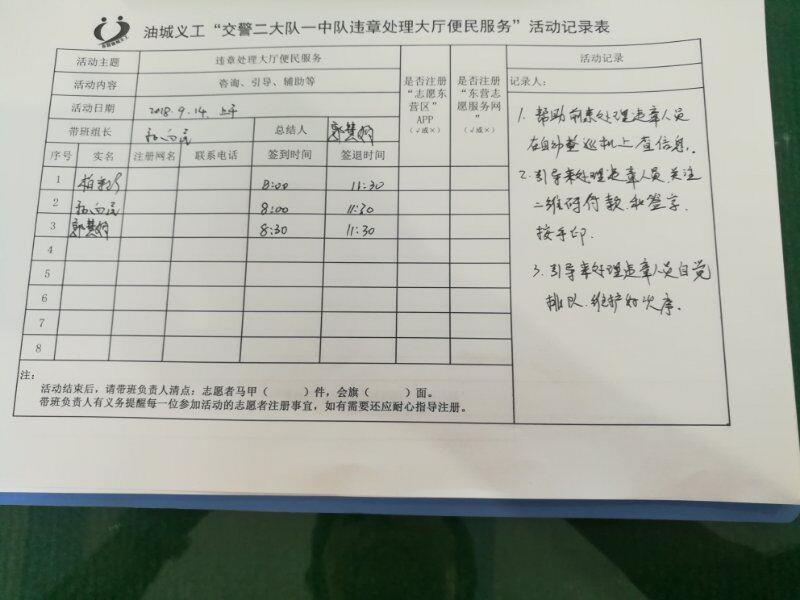 油城义工“交警二大队一中队违章处理大厅便民服务”活动记录表
活动主题 违章处理大厅便民服务
活动内容 咨询、引导、辅助等
活动日期 2018.9.14.上午
带班组长 向民 总结人 郭慧娟
序号 实名 注册网名 联系电话 签到时间 签退时间
是否注册“志愿东营区”APP（√或×）
是否注册“东营志愿服务网”（√或×）
1 8:00 11:30
2 向民 8:00 11:30
3 郭慧娟 8:30 11:30
4
5
6
7
8
注：
活动结束后，请带班负责人清点：志愿者马甲（ ）件，会旗（ ）面。
带班负责人有义务提醒每一位参加活动的志愿者注册事宜，如有需要还应耐心指导注册。
活动记录
记录人：
1. 帮助前来处理违章人员
在自动查巡机上查信息.
2. 引导来处理违章人员.关注
二维码付款.和签字.
按手印.
3. 引导来处理违章人员自觉
排队.维护好次序.